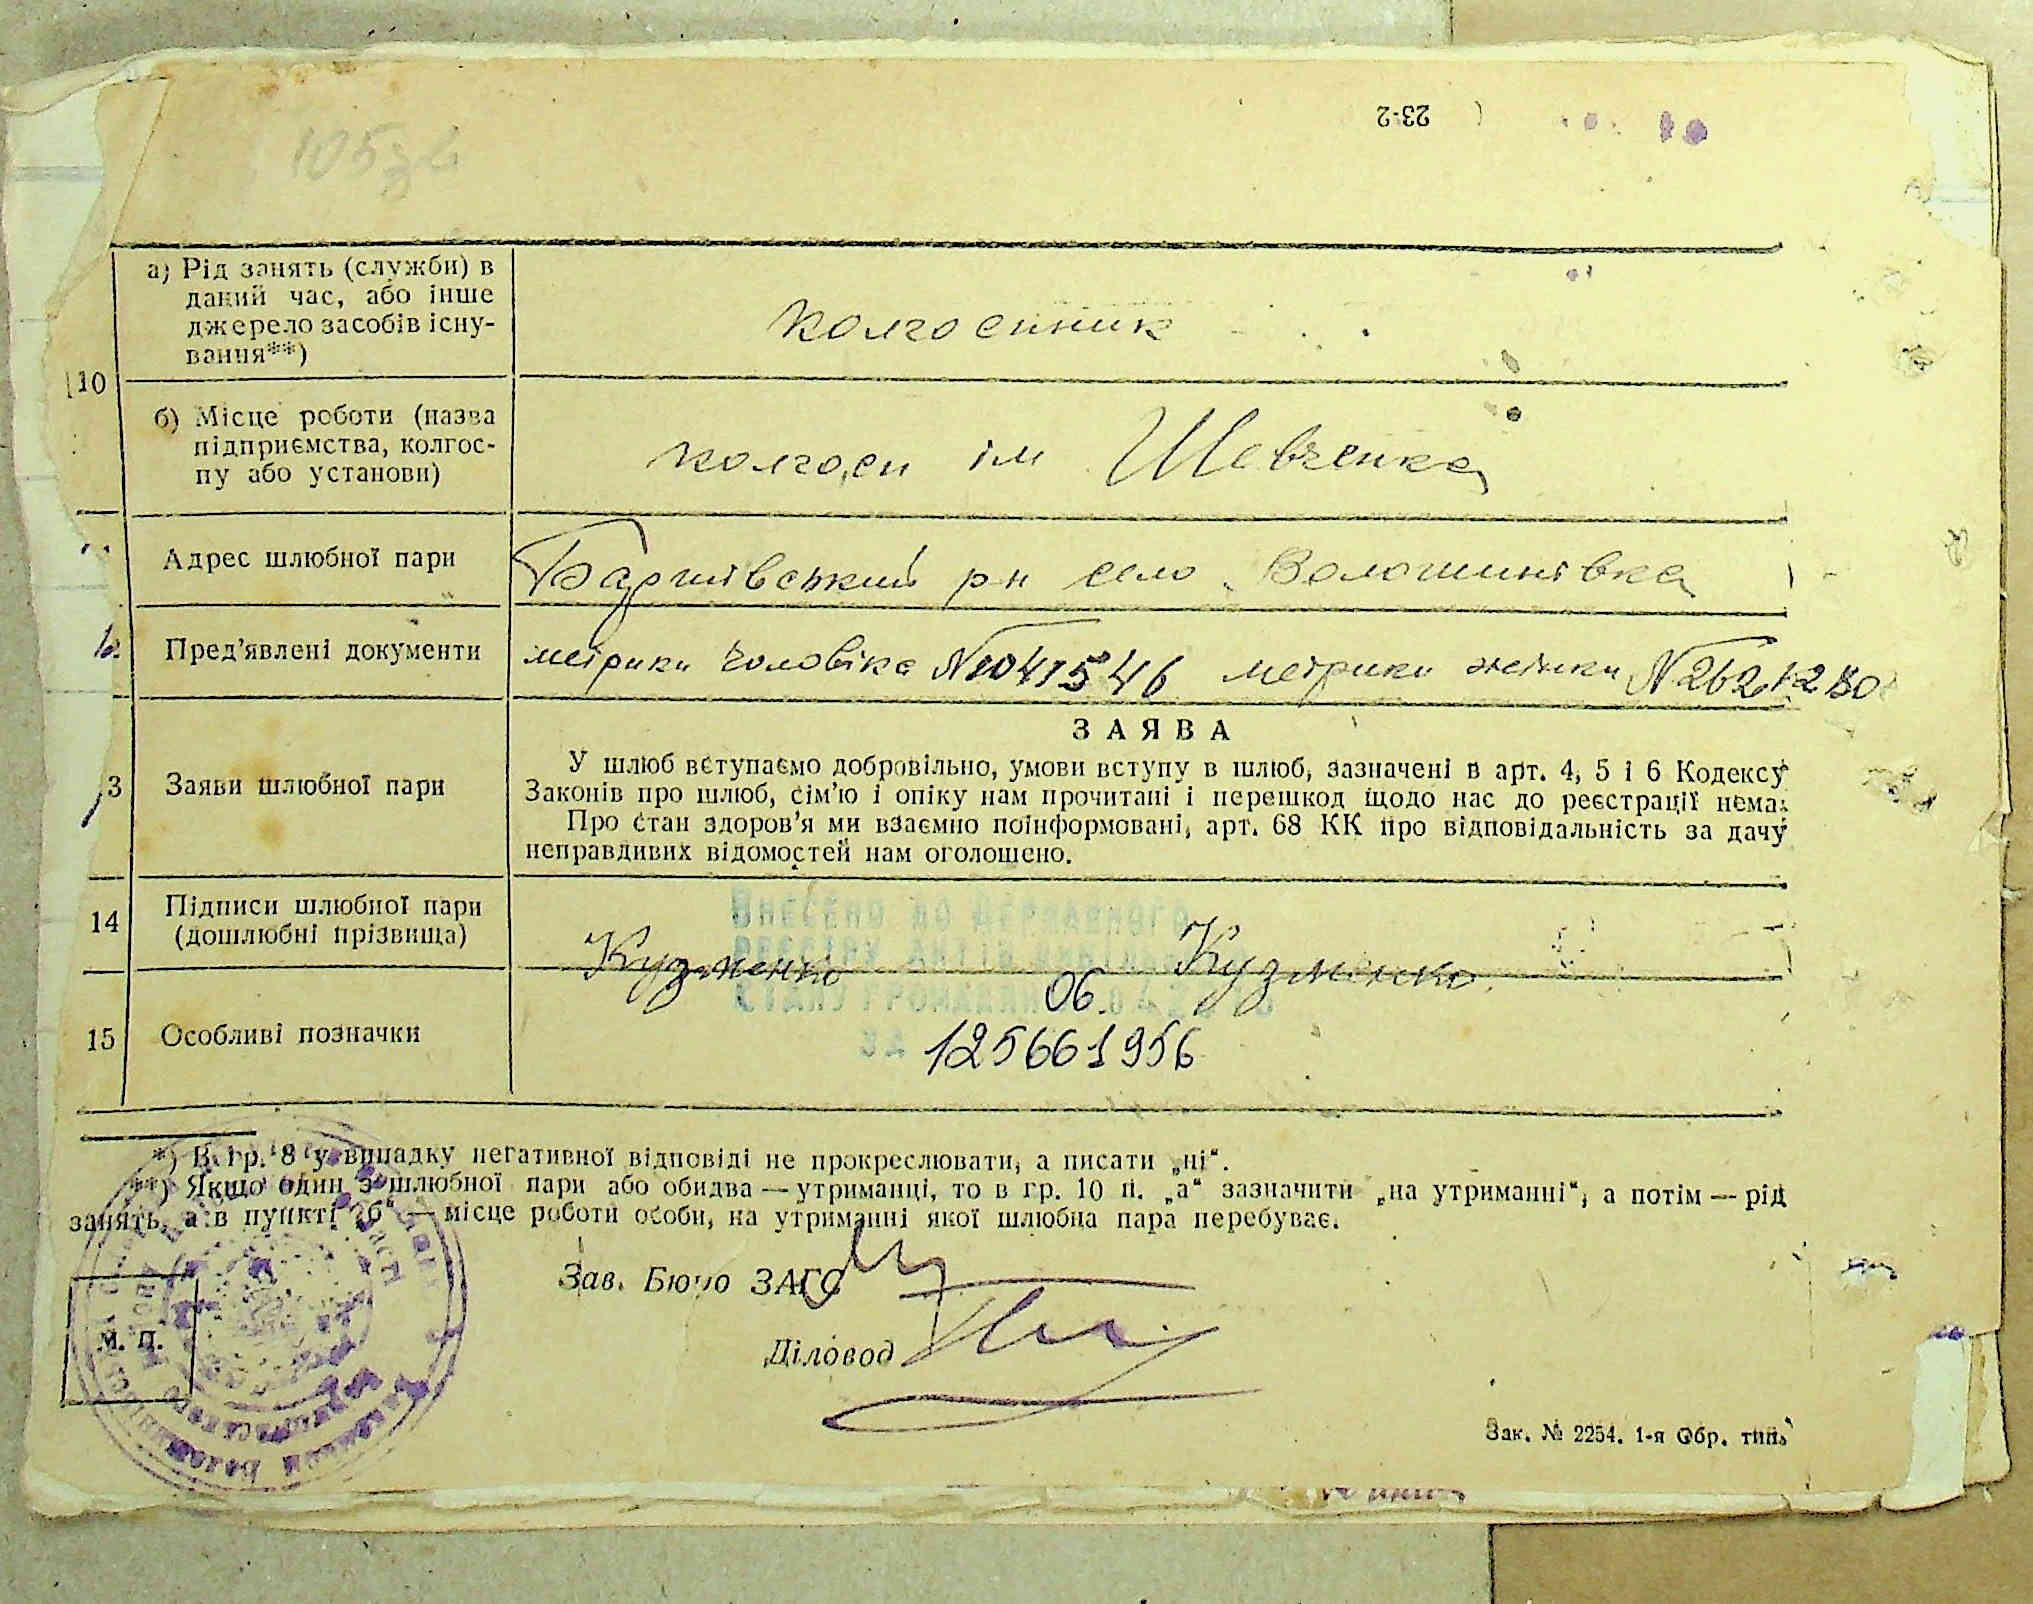 23-2
105 зв
10
а) Рід занять (служби) в
даний час, або інше
джерело засобів існу-
вання**)
колгоспник
б) Місце роботи (назва
підприємства, колгос-
пу або установи)
колгосп ім Шевченка
Адрес шлюбної пари
село Волошинівка
Пред’явлені документи
метрики чоловіка метрики жінки
3
Заяви шлюбної пари
ЗАЯВА
У шлюб вступаємо добровільно, умови вступу в шлюб, зазначені в арт. 4, 5 і 6 Кодексу
Законів про шлюб, сім’ю і опіку нам прочитані і перешкод щодо нас до реєстрації нема.
Про стан здоров’я ми взаємно поінформовані, арт. 68 КК про відповідальність за дачу
неправдивих відомостей нам оголошено.
14
Підписи шлюбної пари
(дошлюбні прізвища)
Внесено до Державного
Кузменко Кузменко
06.
15
Особливі позначки
за 125661956
*) В гр. 8 у випадку негативної відповіді не прокреслювати, а писати „ні“.
**) Якщо один з шлюбної пари або обидва — утриманці, то в гр. 10 п. „а“ зазначити „на утриманні“, а потім — рід
занять, а в пункті „б“ — місце роботи особи, на утриманні якої шлюбна пара перебуває.
Зав. Бюро ЗАГС
М. П.
Діловод
Зак. № 2254. 1-я Обр. тип.